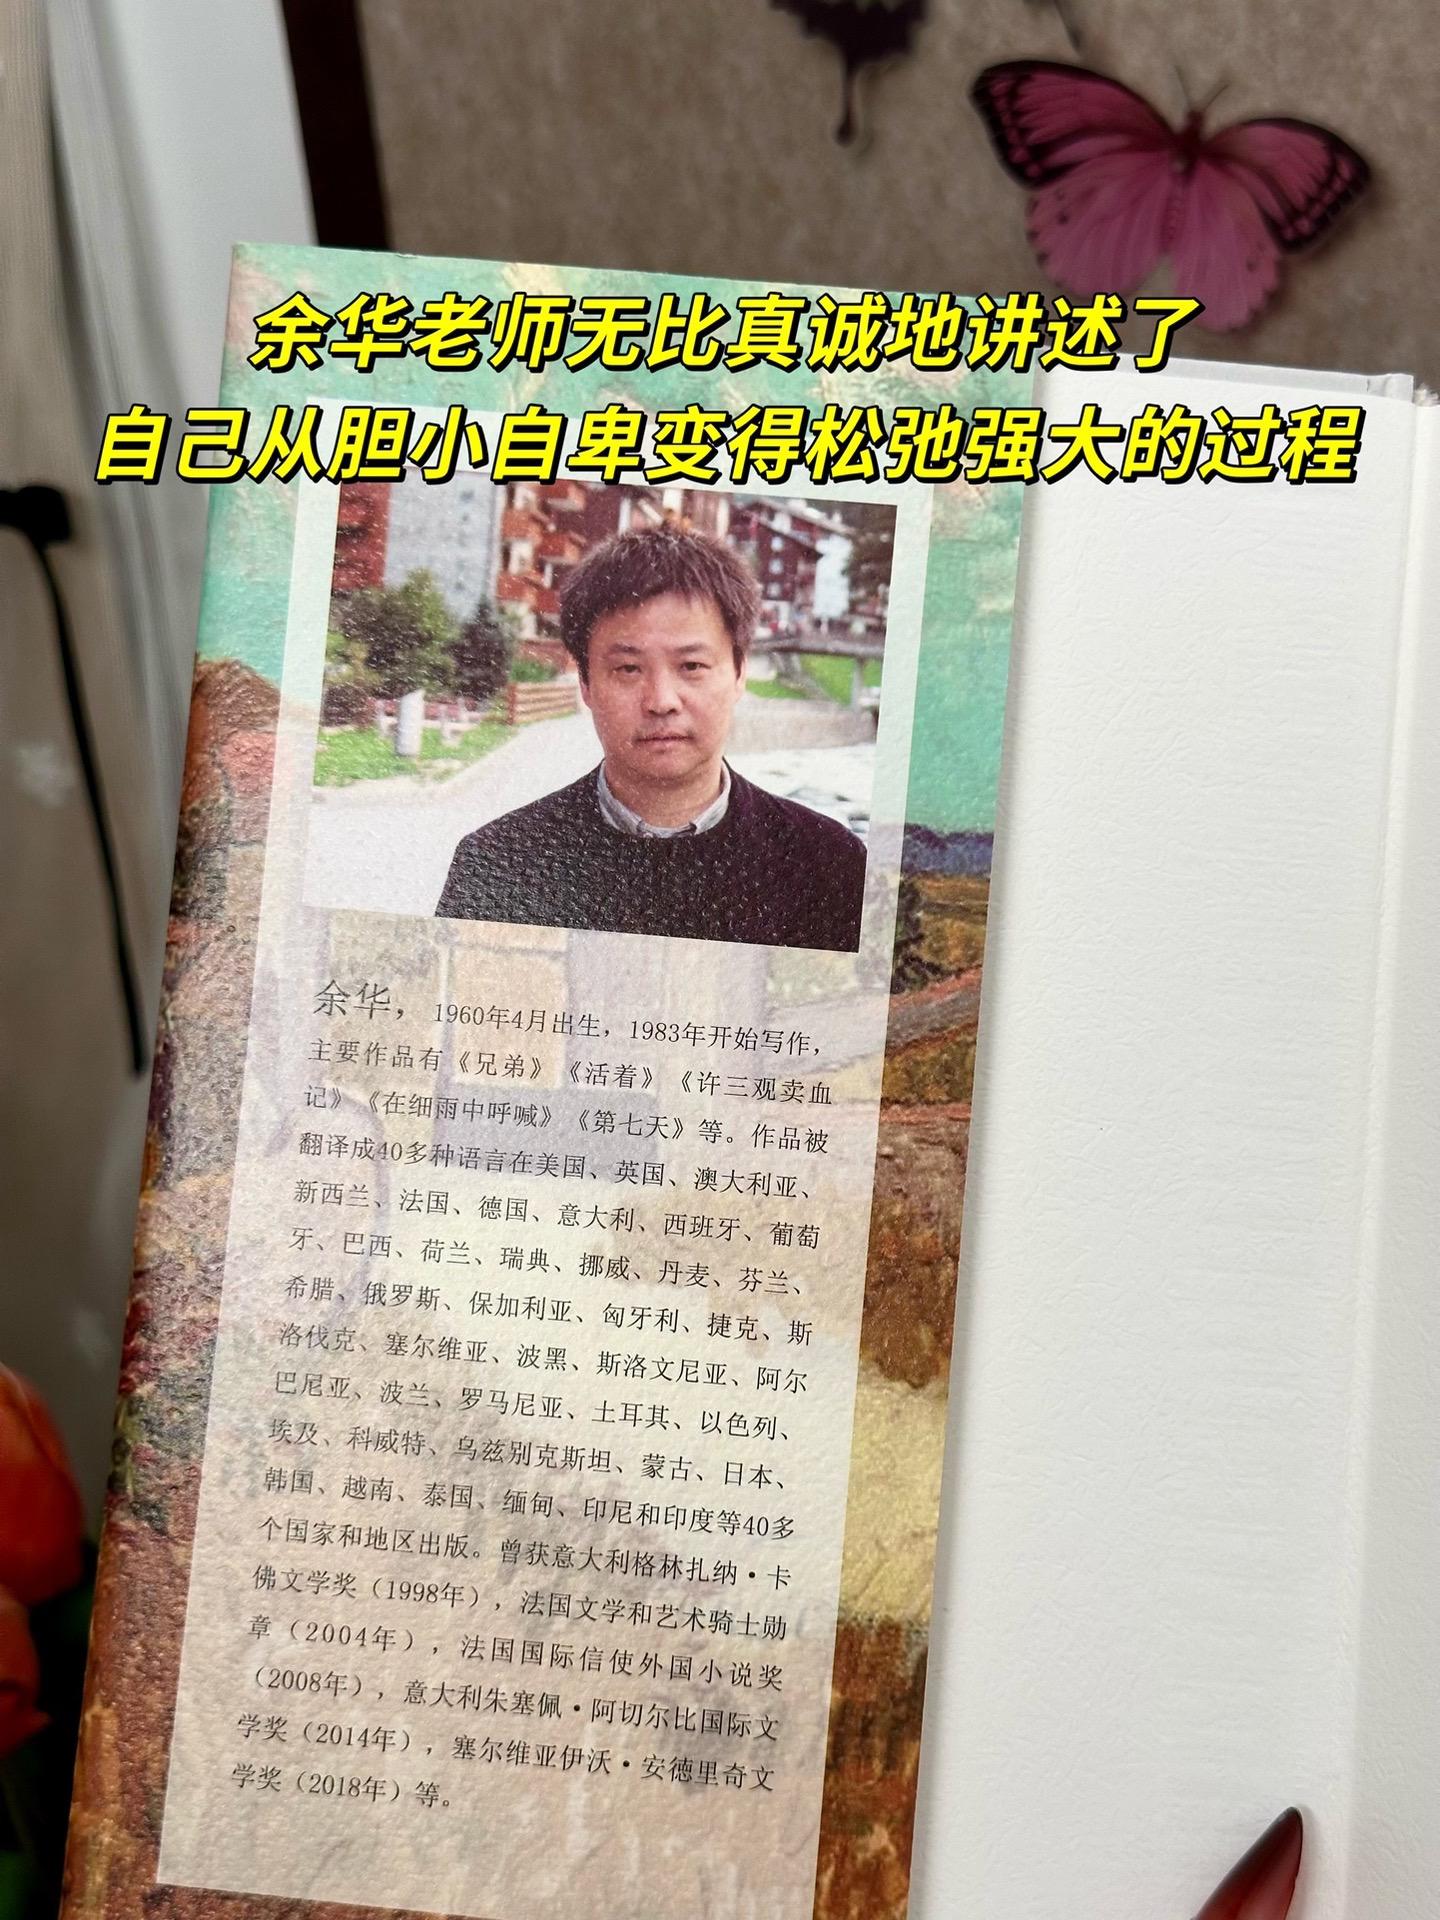 余华老师无比真诚地讲述了
自己从胆小自卑变得松弛强大的过程
余华，1960年4月出生，1983年开始写作，
主要作品有《兄弟》《活着》《许三观卖血
记》《在细雨中呼喊》《第七天》等。作品被
翻译成40多种语言在美国、英国、澳大利亚、
新西兰、法国、德国、意大利、西班牙、葡萄
牙、巴西、荷兰、瑞典、挪威、丹麦、芬兰、
希腊、俄罗斯、保加利亚、匈牙利、捷克、斯
洛伐克、塞尔维亚、波黑、斯洛文尼亚、阿尔
巴尼亚、波兰、罗马尼亚、土耳其、以色列、
埃及、科威特、乌兹别克斯坦、蒙古、日本、
韩国、越南、泰国、缅甸、印尼和印度等40多
个国家和地区出版。曾获意大利格林扎纳·卡
佛文学奖（1998年），法国文学和艺术骑士勋
章（2004年），法国国际信使外国小说奖
（2008年），意大利朱塞佩·阿切尔比国际文
学奖（2014年），塞尔维亚伊沃·安德里奇文
学奖（2018年）等。